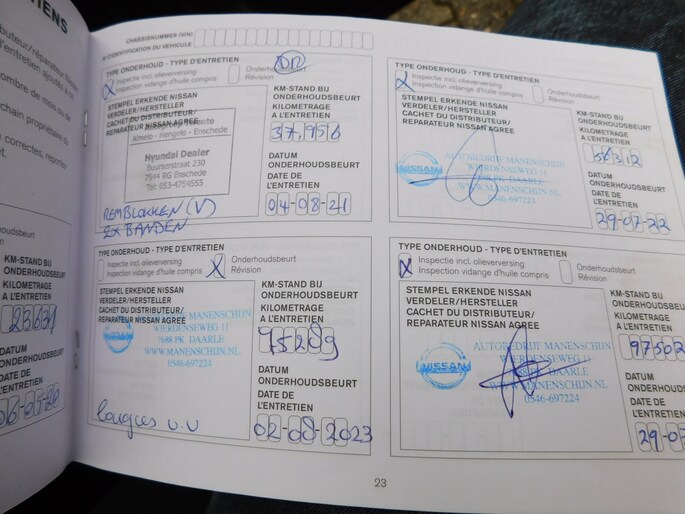 IENS
onderhoudsbeurt
KM-STAND BIJ
ONDERHOUDSBEURT
KILOMETRAGE
A L'ENTRETIEN
23631
DATUM
ONDERHOUDSBEURT
DATE DE
L'ENTRETIEN
CHASSISNUMMER (VIN)
N° D'IDENTIFICATION DU VEHICULE
TYPE ONDERHOUD - TYPE D'ENTRETIEN
X Inspectie incl. olieverversing
Inspection vidange d'huile compris
Onderhoudsbeurt
Révision
STEMPEL ERKENDE NISSAN
VERDELER/HERSTELLER
CACHET DU DISTRIBUTEUR/
REPARATEUR NISSAN AGREE
Almelo - Hengelo - Enschede
Hyundai Dealer
Buurserstraat 230
7544 RG Enschede
Tel. 053-4754555
REMBLOKKEN (V)
2x BANDEN
KM-STAND BIJ
ONDERHOUDSBEURT
KILOMETRAGE
A L'ENTRETIEN
37.956
DATUM
ONDERHOUDSBEURT
DATE DE
L'ENTRETIEN
04-08-21
TYPE ONDERHOUD - TYPE D'ENTRETIEN
X Inspectie incl. olieverversing
Inspection vidange d'huile compris
Onderhoudsbeurt
Révision
STEMPEL ERKENDE NISSAN
VERDELER/HERSTELLER
CACHET DU DISTRIBUTEUR/
REPARATEUR NISSAN AGREE
AUTOBEDRIJF MANENSCHIJN
NISSAN
WIERDENSEWEG 11
PK DAARLE
WWW.MANENSCHIJN.NL
0546-697224
KM-STAND BIJ
ONDERHOUDSBEURT
KILOMETRAGE
A L'ENTRETIEN
56312
DATUM
ONDERHOUDSBEURT
DATE DE
L'ENTRETIEN
29-07-22
TYPE ONDERHOUD - TYPE D'ENTRETIEN
Inspectie incl. olieverversing
Inspection vidange d'huile compris
X Onderhoudsbeurt
Révision
STEMPEL ERKENDE NISSAN
VERDELER/HERSTELLER
CACHET DU DISTRIBUTEUR/
REPARATEUR NISSAN AGREE
MANENSCHIJN
NISSAN
WIERDENSEWEG 11
7688 PK DAARLE
WWW.MANENSCHIJN.NL
0546-697224
KM-STAND BIJ
ONDERHOUDSBEURT
KILOMETRAGE
A L'ENTRETIEN
75289
DATUM
ONDERHOUDSBEURT
DATE DE
L'ENTRETIEN
02-08-2023
TYPE ONDERHOUD - TYPE D'ENTRETIEN
X Inspectie incl. olieverversing
Inspection vidange d'huile compris
Onderhoudsbeurt
Révision
STEMPEL ERKENDE NISSAN
VERDELER/HERSTELLER
CACHET DU DISTRIBUTEUR/
REPARATEUR NISSAN AGREE
AUTOBEDRIJF MANENSCHIJN
NISSAN
WIERDENSEWEG 11
PK DAARLE
WWW.MANENSCHIJN.NL
0546-697224
KM-STAND BIJ
ONDERHOUDSB
KILOMETRAGE
A L'ENTRETIEN
97502
DATUM
ONDERHOUDS
DATE DE
L'ENTRETIEN
29-07
23